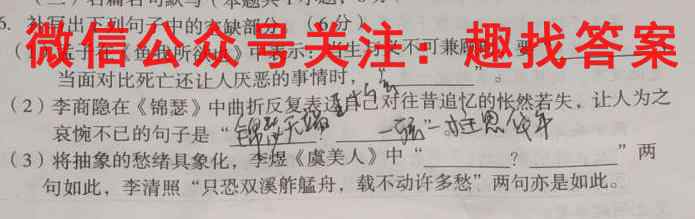 6. 补写出下列句子中的空缺部分。(6分)
微信公众号关注：趣找答案
当面对比死亡还让人厌恶的事情时，“________”。
(2) 李商隐在《锦瑟》中曲折反复表达自己对往昔追忆的怅然若失，让人为之
哀惋不已的句子是“锦瑟无端五十弦 一弦一柱思华年
(3) 将抽象的愁绪具象化，李煜《虞美人》中“________？________”两
句如此，李清照“只恐双溪舴艋舟，载不动许多愁”两句亦是如此。